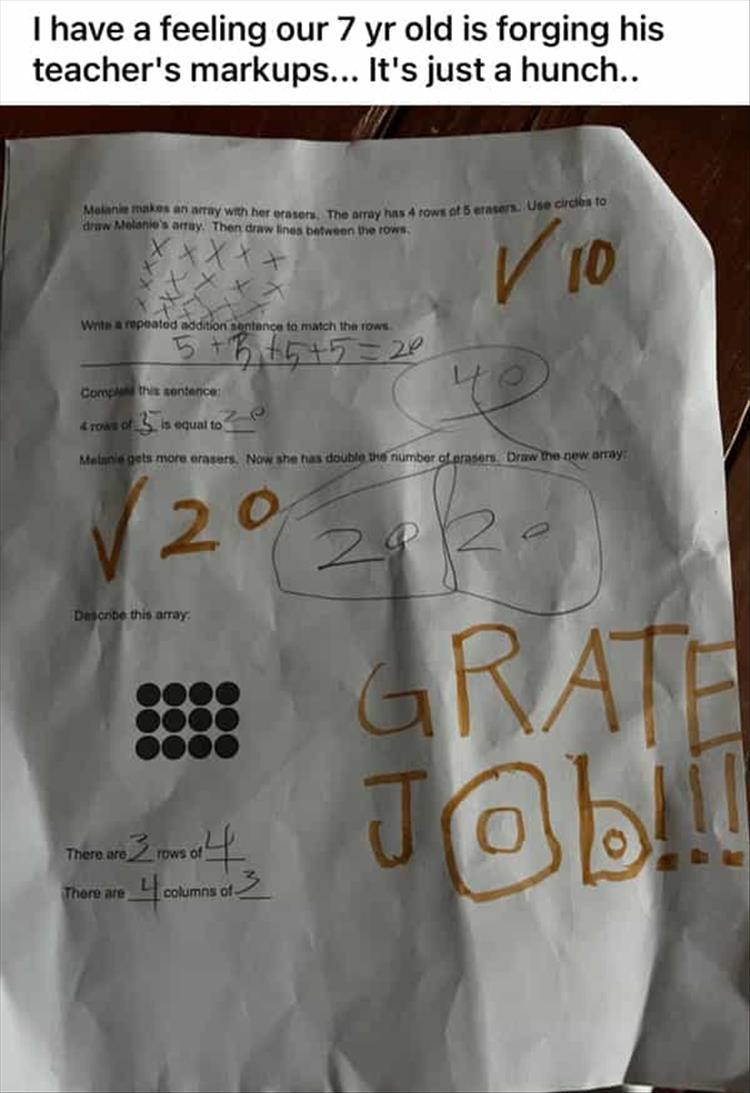 I have a feeling our 7 yr old is forging his
teacher's markups... It's just a hunch..
Melanie makes an array with her erasers. The array has 4 rows of 5 erasers. Use circles to
draw Melanie's array. Then draw lines between the rows.
X + X + +
+ + X + +
+ + + + X
+ + + + +
√ 10
Write a repeated addition sentence to match the rows.
5 + 5 + 5 + 5 = 20
40
Complete this sentence:
4 rows of 5 is equal to 20
Melanie gets more erasers. Now she has double the number of erasers. Draw the new array:
√ 20
20 20
Describe this array:
GRATE
JOb!!!
There are 3 rows of 4
There are 4 columns of 3